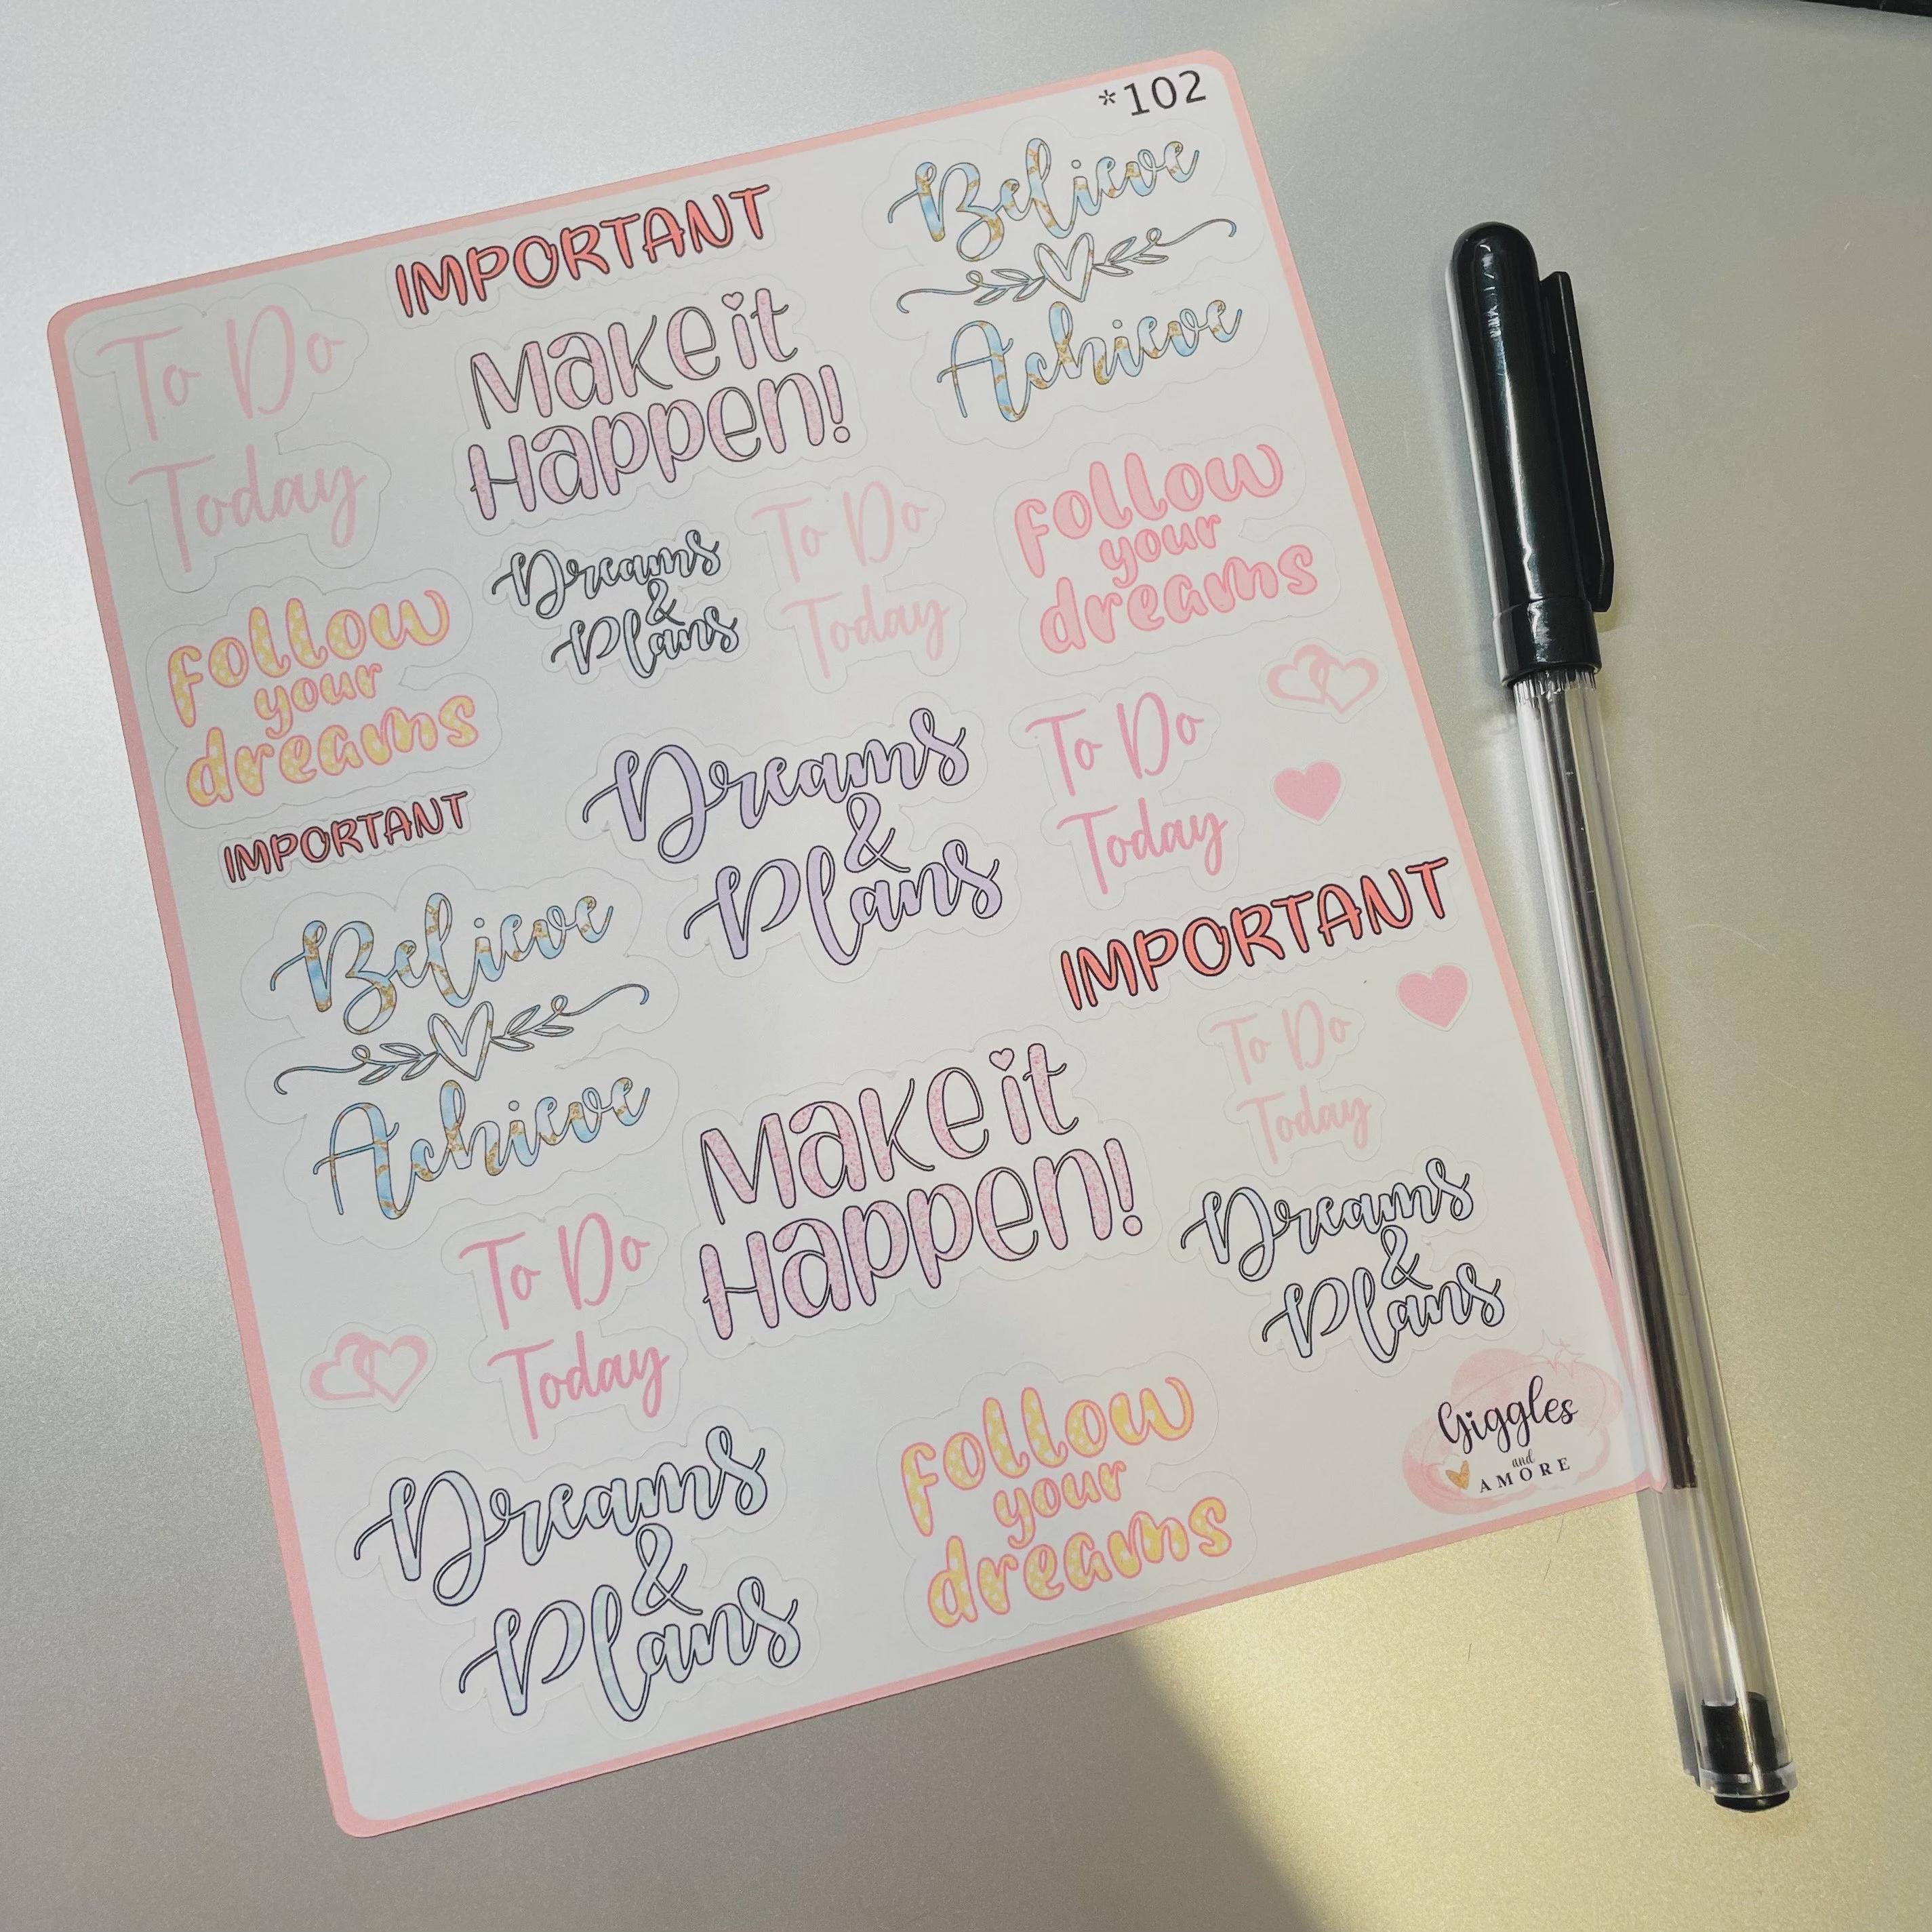 *102
IMPORTANT
Believe
Achieve
To Do
Today
Make it
Happen!
Follow
your
dreams
Dreams
&
Plans
To Do
Today
Follow
your
dreams
IMPORTANT
Dreams
&
Plans
To Do
Today
Believe
Achieve
IMPORTANT
Make it
Happen!
To Do
Today
To Do
Today
Dreams
&
Plans
Dreams
&
Plans
Follow
your
dreams
Giggles
and
AMORE